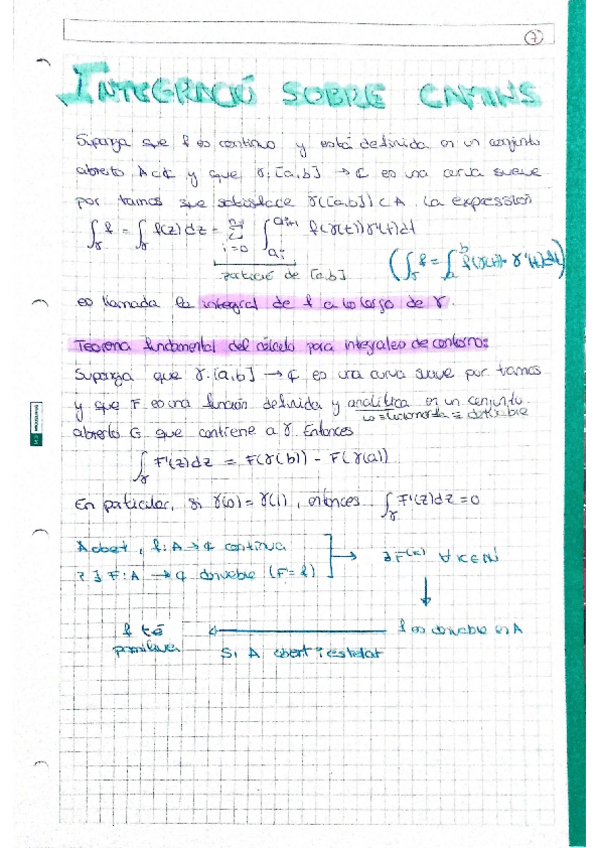 7
INTEGRACIÓ SOBRE CAMINS
Suponga que f es continuo y está definida en un conjunto
abierto A⊂ℂ y que γ: [a,b] → ℂ es una curva suave
por tramos que satisface γ([a,b]) ⊂ A. La expression
∫_γ f = ∫_γ f(z)dz = Σ_{i=0}^{n-1} ∫_{a_i}^{a_{i+1}} f(γ(t))γ'(t)dt
partició de [a,b]
(∫_γ f = ∫_a^b f(γ(t)) γ'(t)dt)
es llamada la integral de f a lo largo de γ.
Teorema fundamental del cálculo para integrales de contorno:
Suponga que γ: [a,b] → ℂ es una curva suave por tramos
y que F es una función definida y analítica en un conjunto
abierto G que contiene a γ. Entonces
∫_γ F'(z)dz = F(γ(b)) - F(γ(a))
En particular, si γ(0) = γ(1), entonces ∫_γ F'(z)dz = 0
A obert, f: A → ℂ contínua
? ∃ F: A → ℂ derivable (F' = f)
→ ∃ F^(k) ∀k∈ℕ
f té
primitiva
← f es derivable en A
Si A obert i estrellat